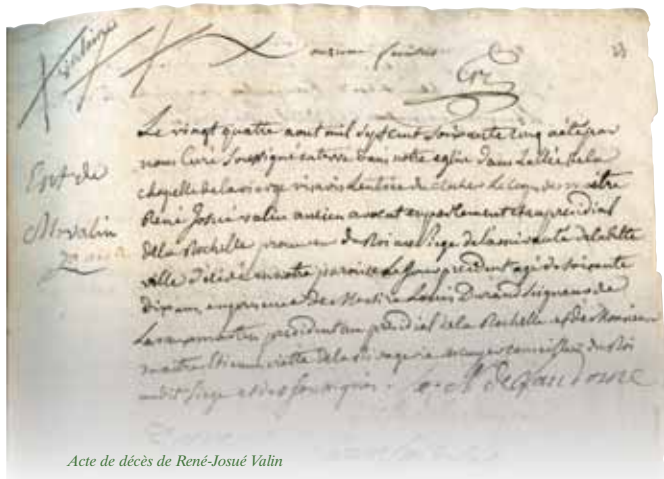 onzieme feuillet
Le vingt quatre aout mil sept cent soixante cinq a été par
nous Curé Soussigné enterré dans notre eglise dans L'allée de la
chapelle de la vierge vis a vis L'entrée du clocher Le corps de maitre
Ent de
René Josué valin ancien avocat en parlement et au presidial
Mr valin
de la Rochelle procureur du Roi au siege de l'amirauté de la ditte
ville decedé en notre paroisse Le jour precedent agé de soixante
dix ans, en presence de Messire Louis Durand seigneur de
president au presidial de la Rochelle et de Monsieur
maitre Etienne viette de la rivagerie ecuyer conseiller du Roi
au dit siege et des soussignés.
Acte de décès de René-Josué Valin